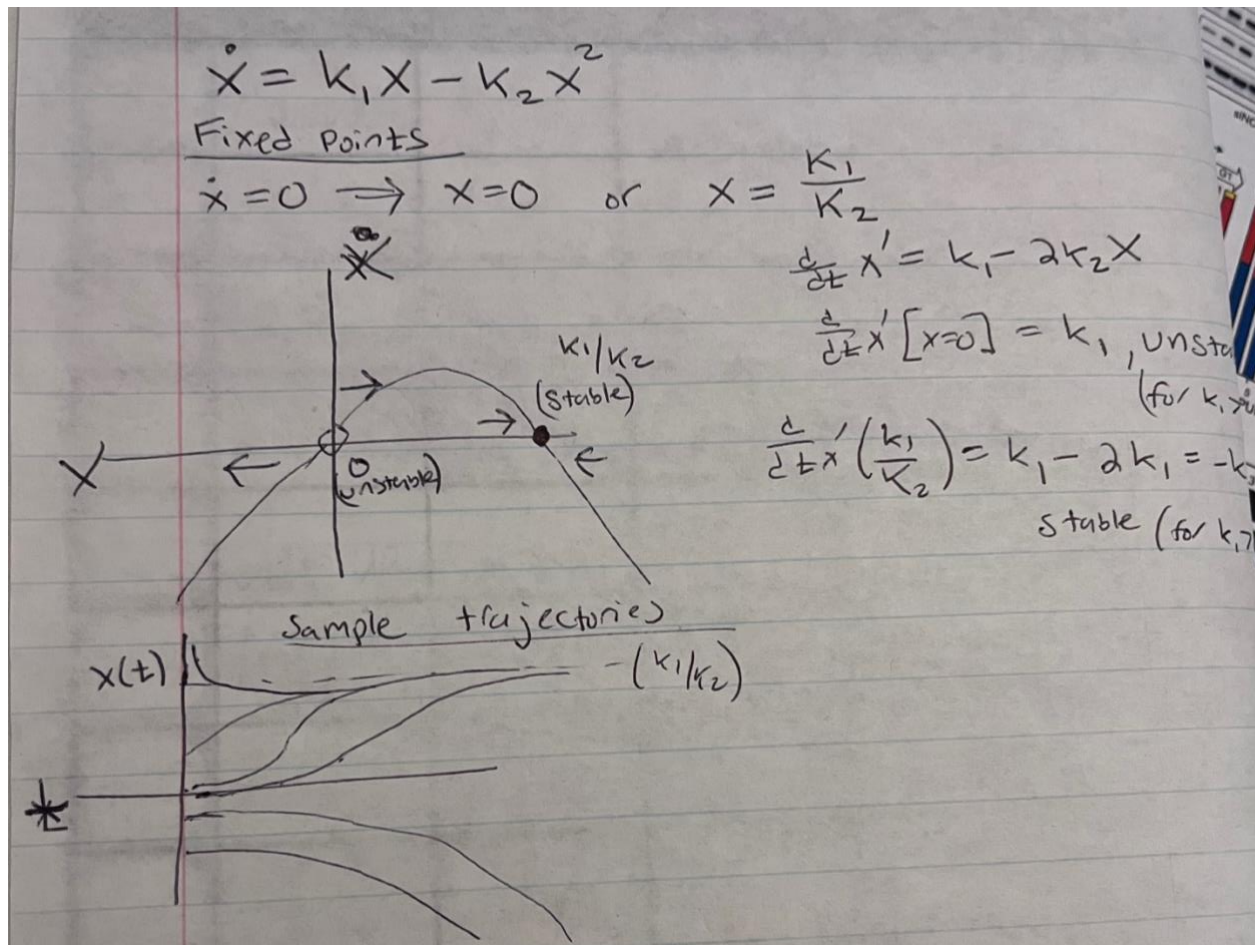 ẋ = k₁x − k₂x²
Fixed points
ẋ = 0 ⟹ x = 0 or x = K₁/K₂
ẋ
d/dt x' = k₁ − 2k₂x
d/dt x' [x=0] = k₁, unsta
(for k₁>
k₁/k₂
(stable)
X
0
(unstable)
d/dt x' (k₁/K₂) = k₁ − 2k₁ = −k
stable (for k₁>
Sample trajectories
x(t)
(k₁/k₂)
t